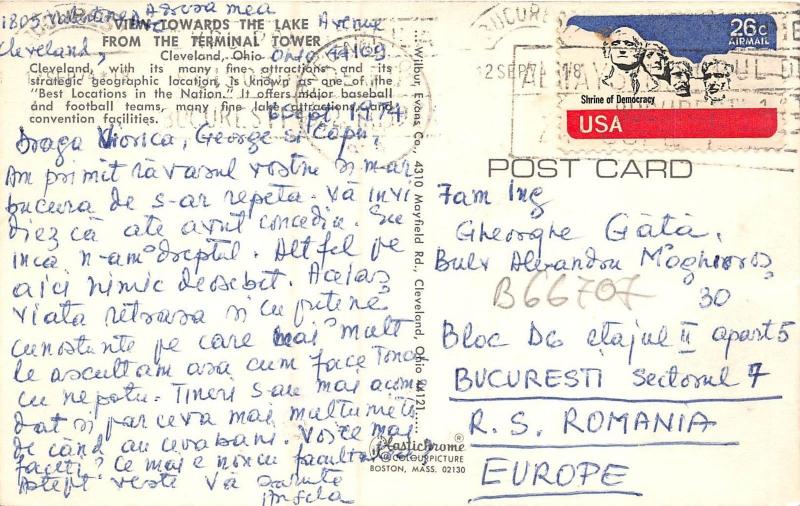 1805 Valentine Adresa mea
Avenue
Cleveland, Ohio 44109
VIEW TOWARDS THE LAKE
FROM THE TERMINAL TOWER
Cleveland, Ohio
Cleveland, with its many fine attractions and its
strategic geographic location, is known as one of the
"Best Locations in the Nation." It offers major baseball
and football teams, many fine lake attractions, and
convention facilities.
6 Sept. 1974
Draga Viorica, George si Capu,
Am primit răvasul vostru si m-ar
bucura de s-ar repeta. Vă invi
diez că ate avut concediu. Eu
inca n-am dreptul. Altfel pe
aici nimic deosebit. Aceiaș
viata retrasa si cu putine
cunostunte pe care mai mult
le ascultam asa cum face Tonce
cu nepotu. Tineri s-au mai acomo
dat si par ceva mai multumiti
de când au ceva bani. Voi ce mai
faceti? Ce mai e nou cu facultatea
Astept vesti Vă saruta
Angela
Wilbur Evans Co., 4310 Mayfield Rd., Cleveland, Ohio 44121
Plastichrome ®
COLOURPICTURE
BOSTON, MASS. 02130
BUCUREST
12 SEP 7 18
26c
AIRMAIL
Shrine of Democracy
USA
POST CARD
Fam Ing
Gheorghe Gâtă,
Bulv Alexandru Moghioroș
B66707 30
Bloc D6 etajul II apart 5
BUCURESTI Sectorul 7
R. S. ROMANIA
EUROPE